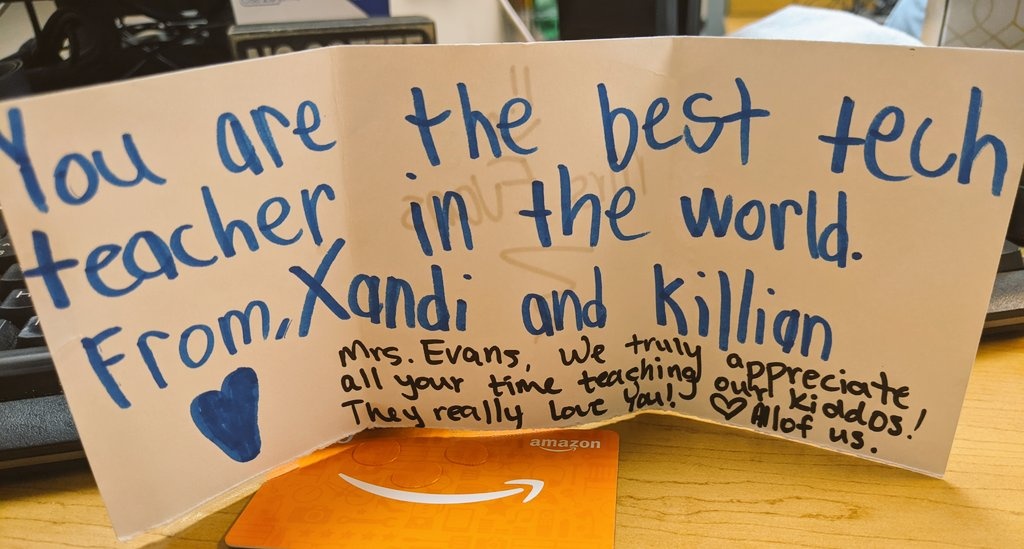 You are the best tech
teacher in the world.
From, Xandi and Killian
Mrs. Evans, we truly appreciate
all your time teaching our kiddos!
They really love you! ♡ All of us.
amazon